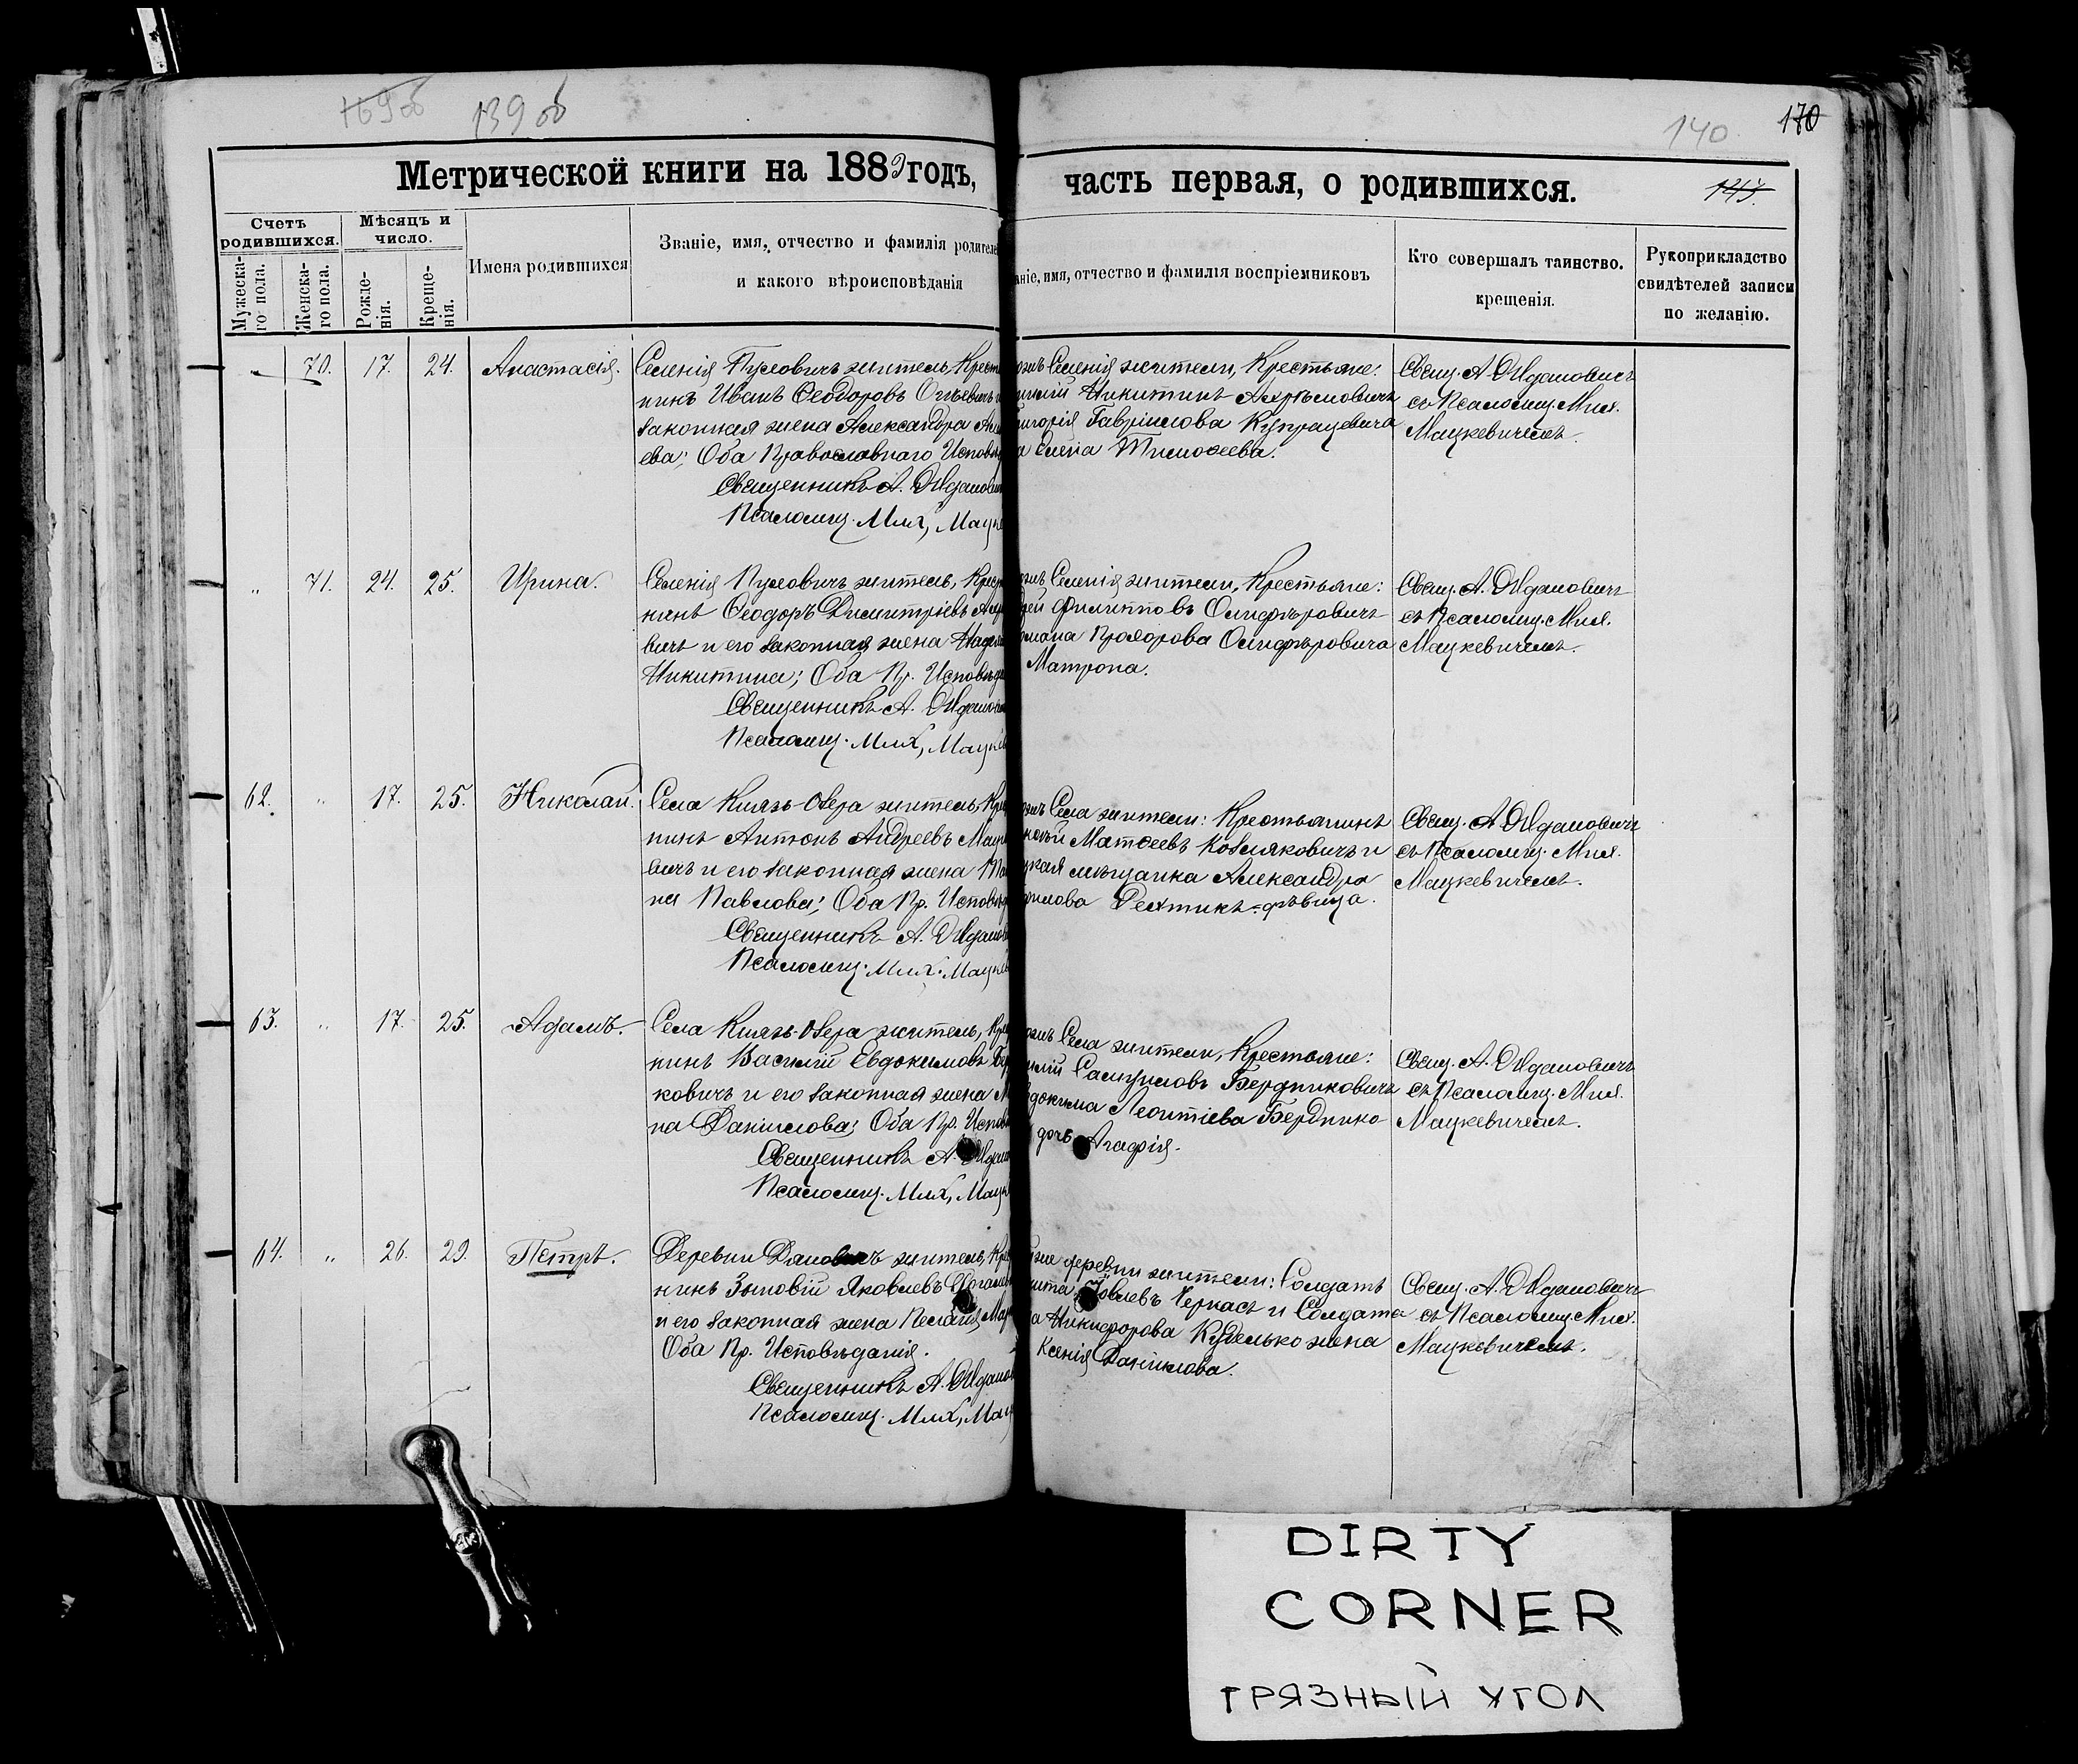 139 об
140.
170
Метрической книги на 1889 годъ,
часть первая, о родившихся.
Счетъ родившихся.
Мѣсяцъ и число.
Имена родившихся
Званіе, имя, отчество и фамилія родителе
и какого вѣроисповѣданія
аніе, имя, отчество и фамилія воспріемниковъ
Кто совершалъ таинство.
крещенія.
Рукоприкладство
свидѣтелей записи
по желанію.
Мужеска-
го пола.
Женска-
го пола.
Рожде-
нія.
Креще-
нія.
70. 17. 24. Анастасія.
Селенія Пуховичъ житель, Крест
нинъ Иванъ Ѳеодоровъ
законная жена Александра
ева; Оба Православнаго Исповѣд
Священникъ А. Ждановичъ
Псаломщ. Мих. Мацке
Селенія жители, Крестьяне:
Никитинъ
Гавріилова Купрацевича
Елена Тимоѳеева.
Свящ. А. Ждановичъ
съ Псаломщ. Мих.
Мацкевичемъ.
" 71. 24. 25. Ирина.
Селенія Пуховичъ житель, Крес
нинъ Ѳеодоръ Димитріевъ
вичъ и его законная жена
Никитина; Оба Пр. Исповѣд
Священникъ А. Ждано
Псаломщ. Мих. Мацкев
Селенія жители, Крестьяне:
Филипповъ Олиферовичъ
Прохорова Олиферовича
Матрона.
Свящ. А. Ждановичъ
съ Псаломщ. Мих.
Мацкевичемъ.
62. " 17. 25. Николай.
Села Князь-Озера житель, Кре
нинъ Антонъ Андреевъ Мац
вичъ и его законная жена
на Павлова; Оба Пр. Исповѣд
Священникъ А. Ждано
Псаломщ. Мих. Мацкев
Села жители: Крестьянинъ
Матѳеевъ Козляковичъ и
мѣщанка Александра
Дехтикъ-дѣвица.
Свящ. А. Ждановичъ
съ Псаломщ. Мих.
Мацкевичемъ.
63. " 17. 25. Адамъ.
Села Князь-Озера житель, Кре
нинъ Василій Евдокимовъ Бер
ковичъ и его законная жена
на Даніилова; Оба Пр. Испов
Священникъ А. Ждан
Псаломщ. Мих. Мацк
Села жители, Крестьяне:
Самуиловъ Бердниковичъ
Леонтіева Берднико-
дочь Агафія.
Свящ. А. Ждановичъ
съ Псаломщ. Мих.
Мацкевичемъ.
64. " 26. 29. Петръ.
Деревни Дяковичъ житель, Кре
нинъ Зиновій Яковлевъ
и его законная жена Пелагія
Оба Пр. Исповѣданія.
Священникъ А. Ждано
Псаломщ. Мих. Мац
же деревни жители: Солдатъ
Черкасъ и Солдата
Никифорова Куделько жена
Ксенія Даніилова.
Свящ. А. Ждановичъ
съ Псаломщ. Мих.
Мацкевичемъ.
DIRTY
CORNER
ГРЯЗНЫЙ УГОЛ